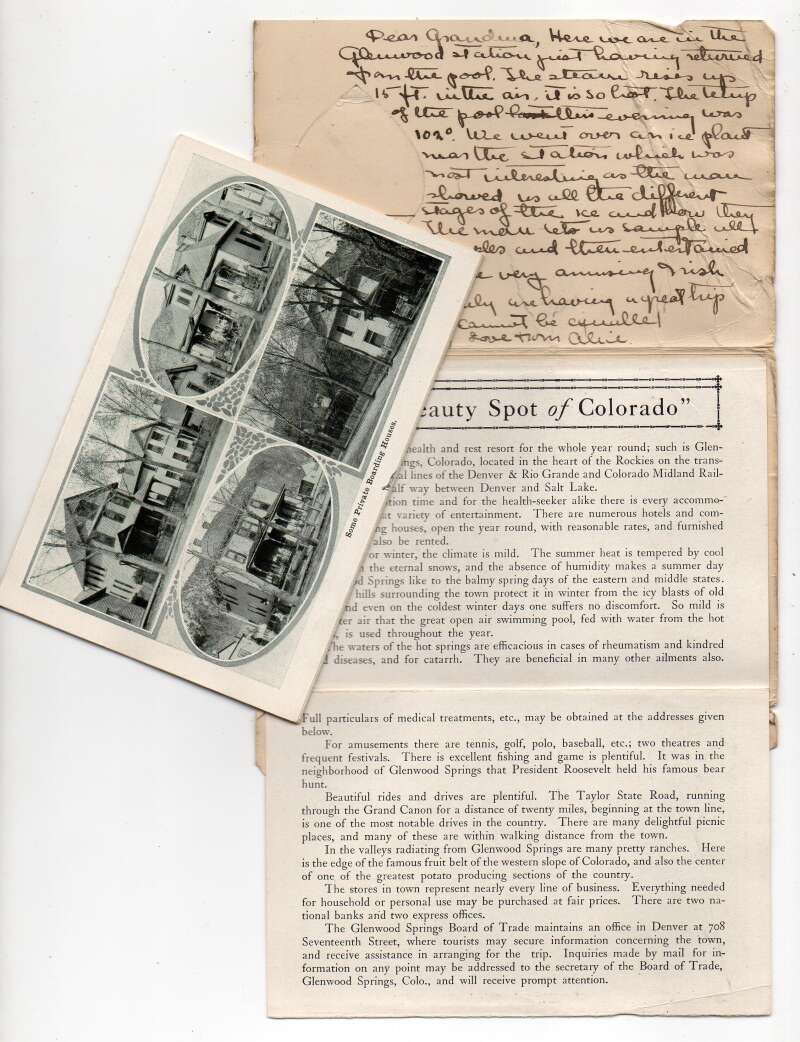 Dear Grandma, Here we are in the
Glenwood station just having returned
from the pool. The steam rises up
15 ft. in the air, it is so hot. The temp
of the pool this evening was
102°. We went over an ice plant
near the station which was
most interesting as the man
showed us all the different
stages of the ice and how they
The man let us sample all
and then entertained
very amusing Irish
are having a great trip
cannot be equalled
Love from Alice.
Some Private Boarding Houses.
eauty Spot of Colorado”
health and rest resort for the whole year round; such is Glen-
ngs, Colorado, located in the heart of the Rockies on the trans-
al lines of the Denver & Rio Grande and Colorado Midland Rail-
alf way between Denver and Salt Lake.
tion time and for the health-seeker alike there is every accommo-
at variety of entertainment. There are numerous hotels and com-
ng houses, open the year round, with reasonable rates, and furnished
also be rented.
or winter, the climate is mild. The summer heat is tempered by cool
the eternal snows, and the absence of humidity makes a summer day
d Springs like to the balmy spring days of the eastern and middle states.
hills surrounding the town protect it in winter from the icy blasts of old
nd even on the coldest winter days one suffers no discomfort. So mild is
ter air that the great open air swimming pool, fed with water from the hot
, is used throughout the year.
The waters of the hot springs are efficacious in cases of rheumatism and kindred
d diseases, and for catarrh. They are beneficial in many other ailments also.
Full particulars of medical treatments, etc., may be obtained at the addresses given
below.
For amusements there are tennis, golf, polo, baseball, etc.; two theatres and
frequent festivals. There is excellent fishing and game is plentiful. It was in the
neighborhood of Glenwood Springs that President Roosevelt held his famous bear
hunt.
Beautiful rides and drives are plentiful. The Taylor State Road, running
through the Grand Canon for a distance of twenty miles, beginning at the town line,
is one of the most notable drives in the country. There are many delightful picnic
places, and many of these are within walking distance from the town.
In the valleys radiating from Glenwood Springs are many pretty ranches. Here
is the edge of the famous fruit belt of the western slope of Colorado, and also the center
of one of the greatest potato producing sections of the country.
The stores in town represent nearly every line of business. Everything needed
for household or personal use may be purchased at fair prices. There are two na-
tional banks and two express offices.
The Glenwood Springs Board of Trade maintains an office in Denver at 708
Seventeenth Street, where tourists may secure information concerning the town,
and receive assistance in arranging for the trip. Inquiries made by mail for in-
formation on any point may be addressed to the secretary of the Board of Trade,
Glenwood Springs, Colo., and will receive prompt attention.